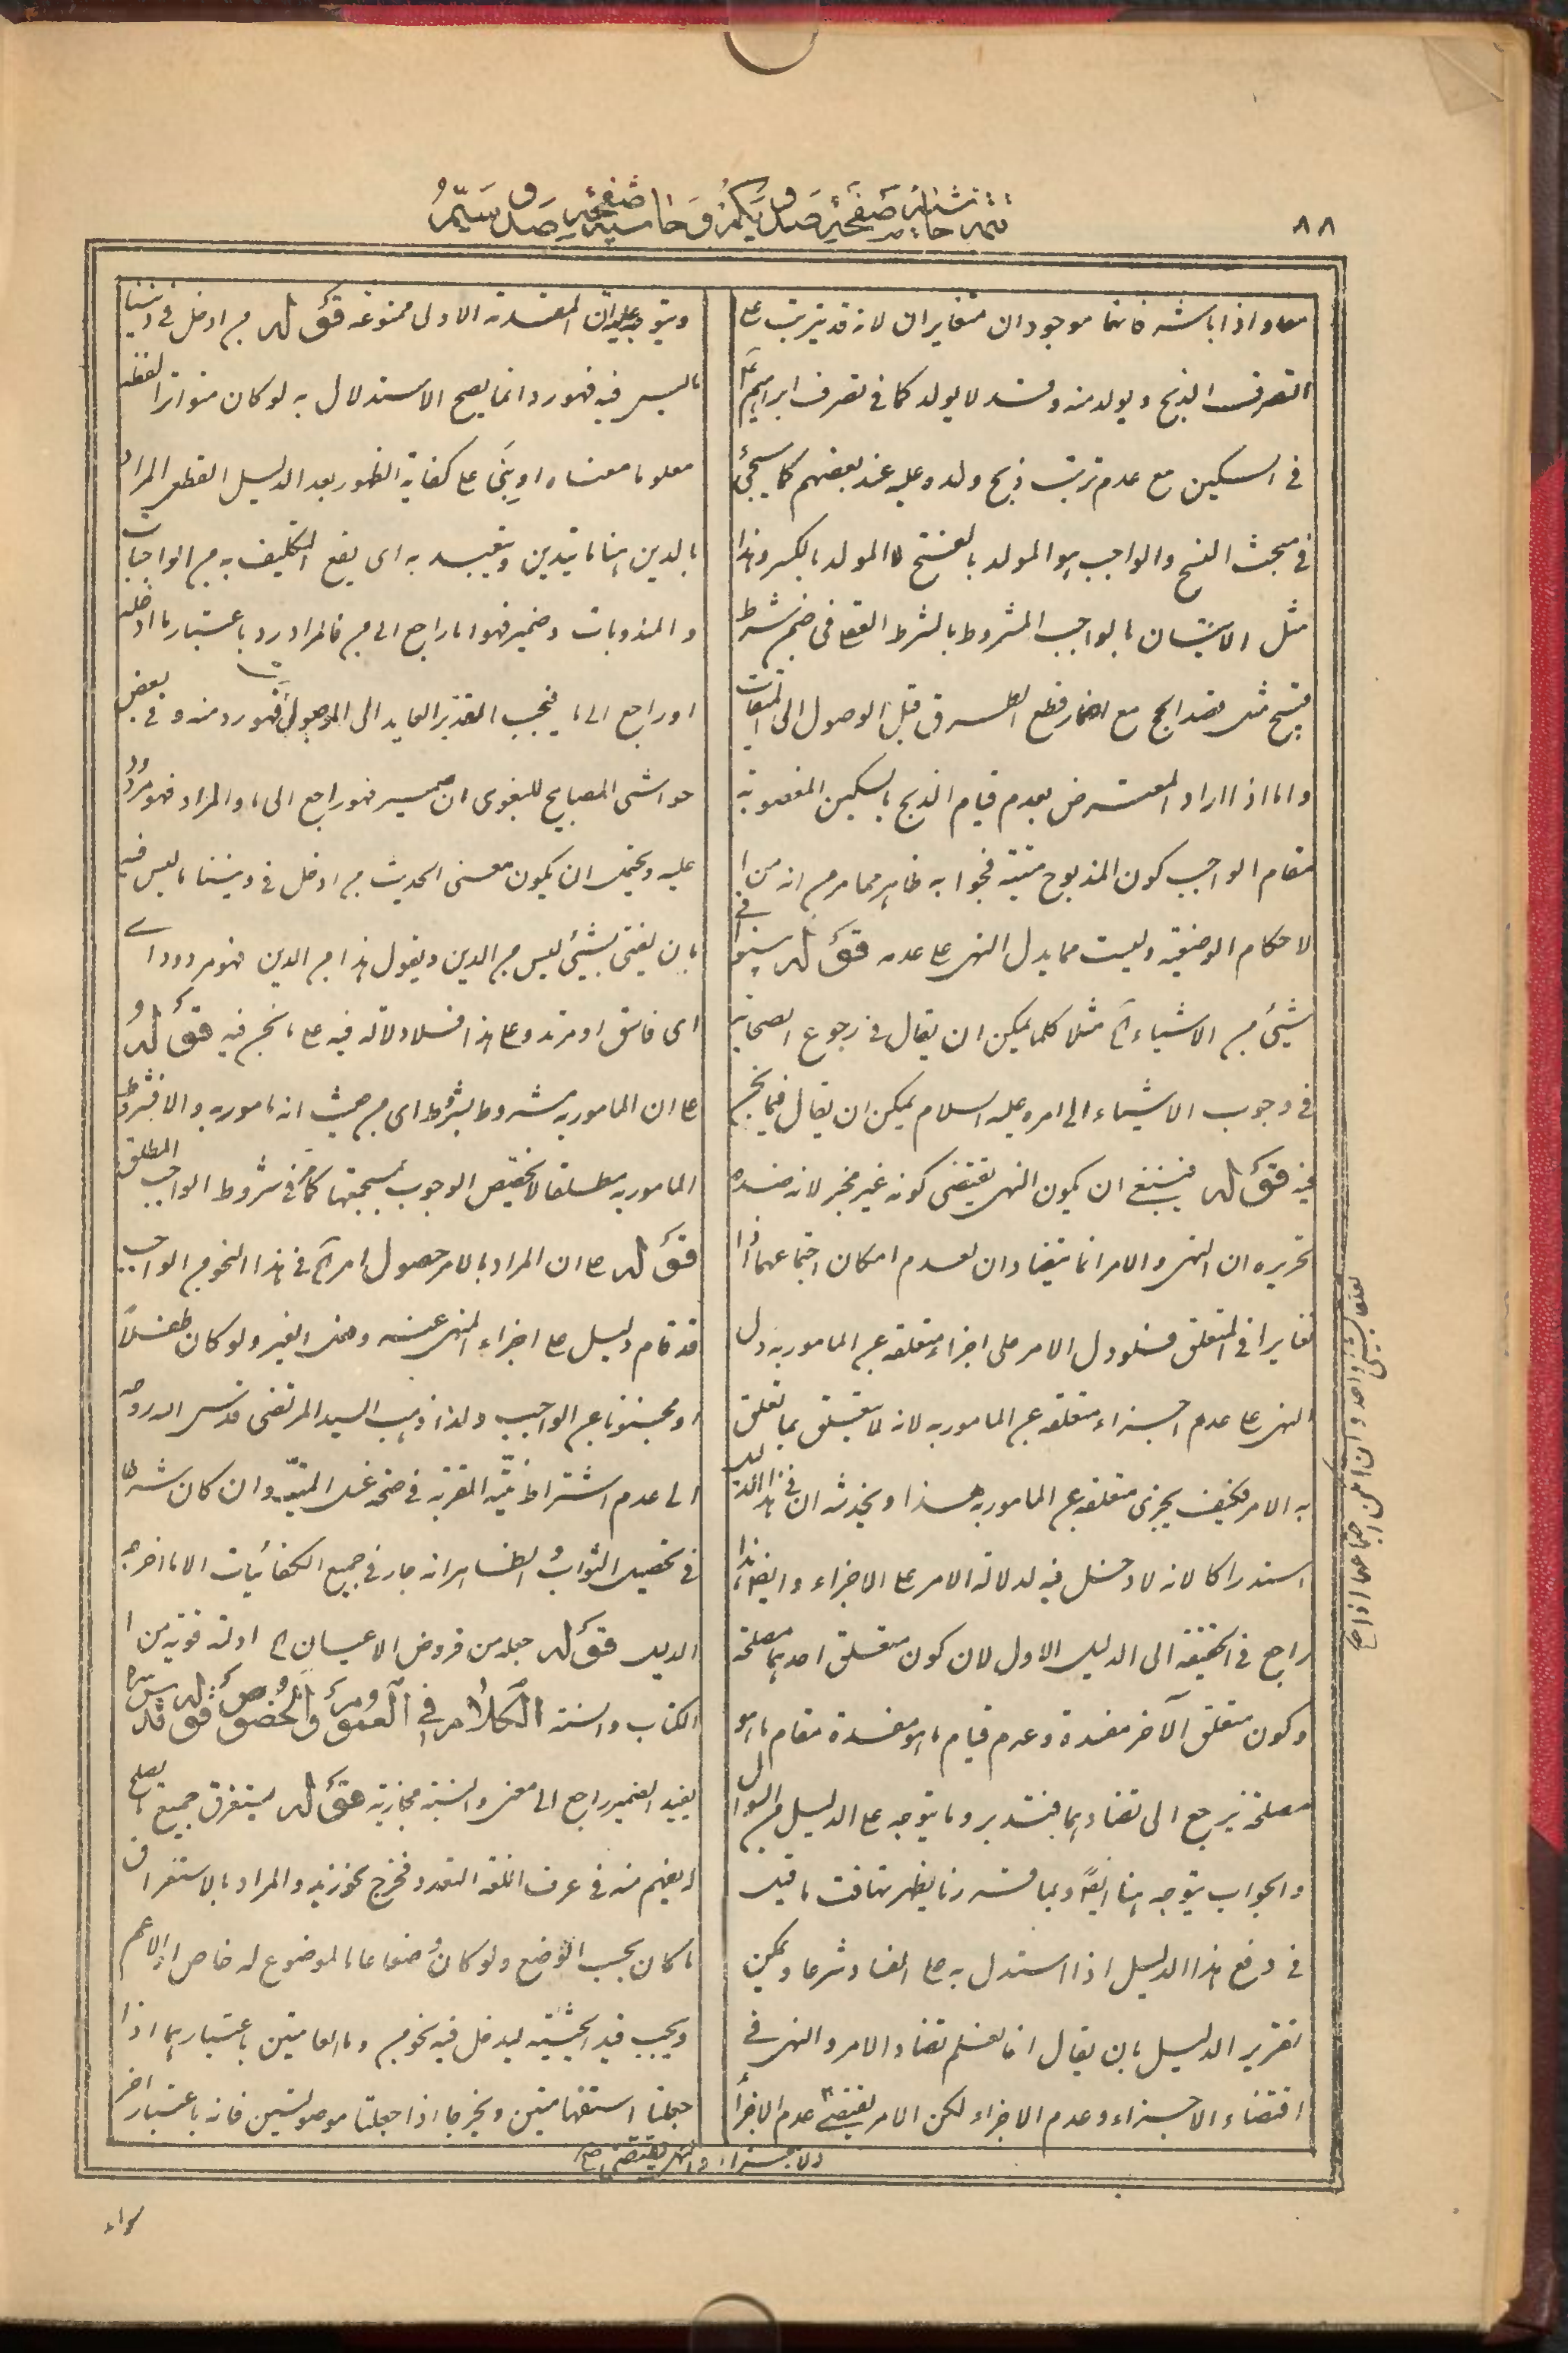 ٨٨
تتمه حاشیه صفحهٔ صدو یکم و حاشیه صفحه صدو سیم
معا و اذا باشه فانهما موجودان متغایران لانه قد یترتب علی
التصرف الذبح و یولد منه و قد لا یولد کما فی تصرف ابراهیم ع
فی السکین مع عدم ترتب ذبح ولده علیه عند بعضهم کما سیجئ
فی مبحث النسخ والواجب هو المولد بالفتح لا المولد بالکسر و هذا
مثل الاتیان بالواجب المشروط بالشرط فی ضمن شرط
قبیح مثل قصد الحج مع قطع الطریق قبل الوصول الی المیقات
و اما اذا اراد المعترض بعدم قیام الذبح بالسکین المغصوبة
مقام الواجب کون المذبوح میتة فجوابه ظاهر مما مر من انه من ا
لاحکام الوضعیة ولیست مما یدل النهی علی عدمه قوله فی
شیئ من الاشیاء الخ مثلا کلما یمکن ان یقال فی رجوع الصحابة
فی وجوب الاشیاء الی امره علیه السلام یمکن ان یقال فیما نحن
فیه قوله فینبغی ان یکون النهی یقتضی کونه غیر مجز لانه ضده
تحریره ان النهی والامر انما یتضادان لعدم امکان اجتماعهما اذا
تغایرا فی المتعلق فلو دل الامر علی اجزاء متعلقه عن المامور به دل
النهی علی عدم اجزاء متعلقه عن المامور به لانه لا یتعلق بما تعلق
به الامر فکیف یجزی متعلقه عن المامور به هذا و یخدشه ان فی هذا الدلیل
استدراکا لانه لا دخل فیه لدلالة الامر علی الاجزاء و ایضا هذا
راجع فی الحقیقة الی الدلیل الاول لان کون متعلق احدهما مصلحة
و کون متعلق الآخر مفسدة و عدم قیام ما هو مفسدة مقام ما هو
مصلحة یرجع الی تضادهما فتدبر و ما یتوجه علی الدلیل من السؤال
والجواب یتوجه هنا ایضا و بما قررنا یظهر تهافت ما قیل
فی دفع هذا الدلیل اذا استدل به علی الفساد شرعا و یمکن
تقریر الدلیل بان یقال انا لا نسلم تضاد الامر والنهی فی
اقتضاء الاجزاء و عدم الاجزاء لکن الامر یقتضی عدم الاجزأ
و یتوجه علیه ان المقدمة الاولی ممنوعة قوله من ادخل فی دیننا
ما لیس فیه فهو رد انما یصح الاستدلال به لو کان متواترا لفظه
معلوما معناه او بنی علی کفایة الظهور بعد الدلیل القطعی المراد
بالدین هنا ما یتدین و یتعبد به ای یقع التکلیف به من الواجبات
و المندوبات و ضمیر فهو اما راجع الی من فالمراد رد باعتبار ما ادخله
او راجع الی ما فیجب تقدیر العاید الی الموصول ای فهو رد منه و فی بعض
حواشی المصابیح للبغوی ان ضمیر فهو راجع الی ما والمراد فهو مردود
علیه و یحتمل ان یکون معنی الحدیث من ادخل فی دیننا ما لیس فیه
بان یفتی بشیئ لیس من الدین و یقول هذا من الدین فهو مردود ا
ای فاسق او مرتد و علی هذا فلا دلالة فیه علی ما نحن فیه قوله
علی ان المامور به مشروط بشروط ای من حیث انه مامور به والا فشروط
المامور به مطلقا لا تخصیص الوجوب بجمیعها کما فی شروط الواجب المطلق
قوله علی ان المراد بالامر حصول امر الخ فی هذا النحو من الواجب
قد قام دلیل علی اجزاء المنهی عنه و فعل الغیر و لو کان طفلا
او مجنونا عن الواجب و لذا ذهب السید المرتضی قدس الله روحه
الی عدم اشتراط نیة القربة فی صحة غسل المیت و ان کان شرطا
فی تحصیل الثواب والظاهر انه جار فی جمیع الکفائیات الا ما اخرجه
الدلیل قوله جعله من فروض الاعیان الخ ادلة قویة من ا
الکتاب والسنة الکلام فی العموم والخصوص قوله قدس سره
یفید الضمیر راجع الی معنی والنسبة مجازیة قوله یستغرق جمیع ما یصلح
له یفهم منه فی عرف اللغة التعدد فخرج نحو زید والمراد بالاستغراق
ما کان بحسب الوضع و لو کان وضعا عاما لموضوع له خاص او الاعم
و یجب قید الحیثیة لیدخل فیه نحو من و ما العامتین باعتبارهما اذا
جعلتا استفهامیتین و یخرجا اذا جعلتا موصولتین فانه باعتبار اخر
ولاجزاء والنهی یقتضی صح